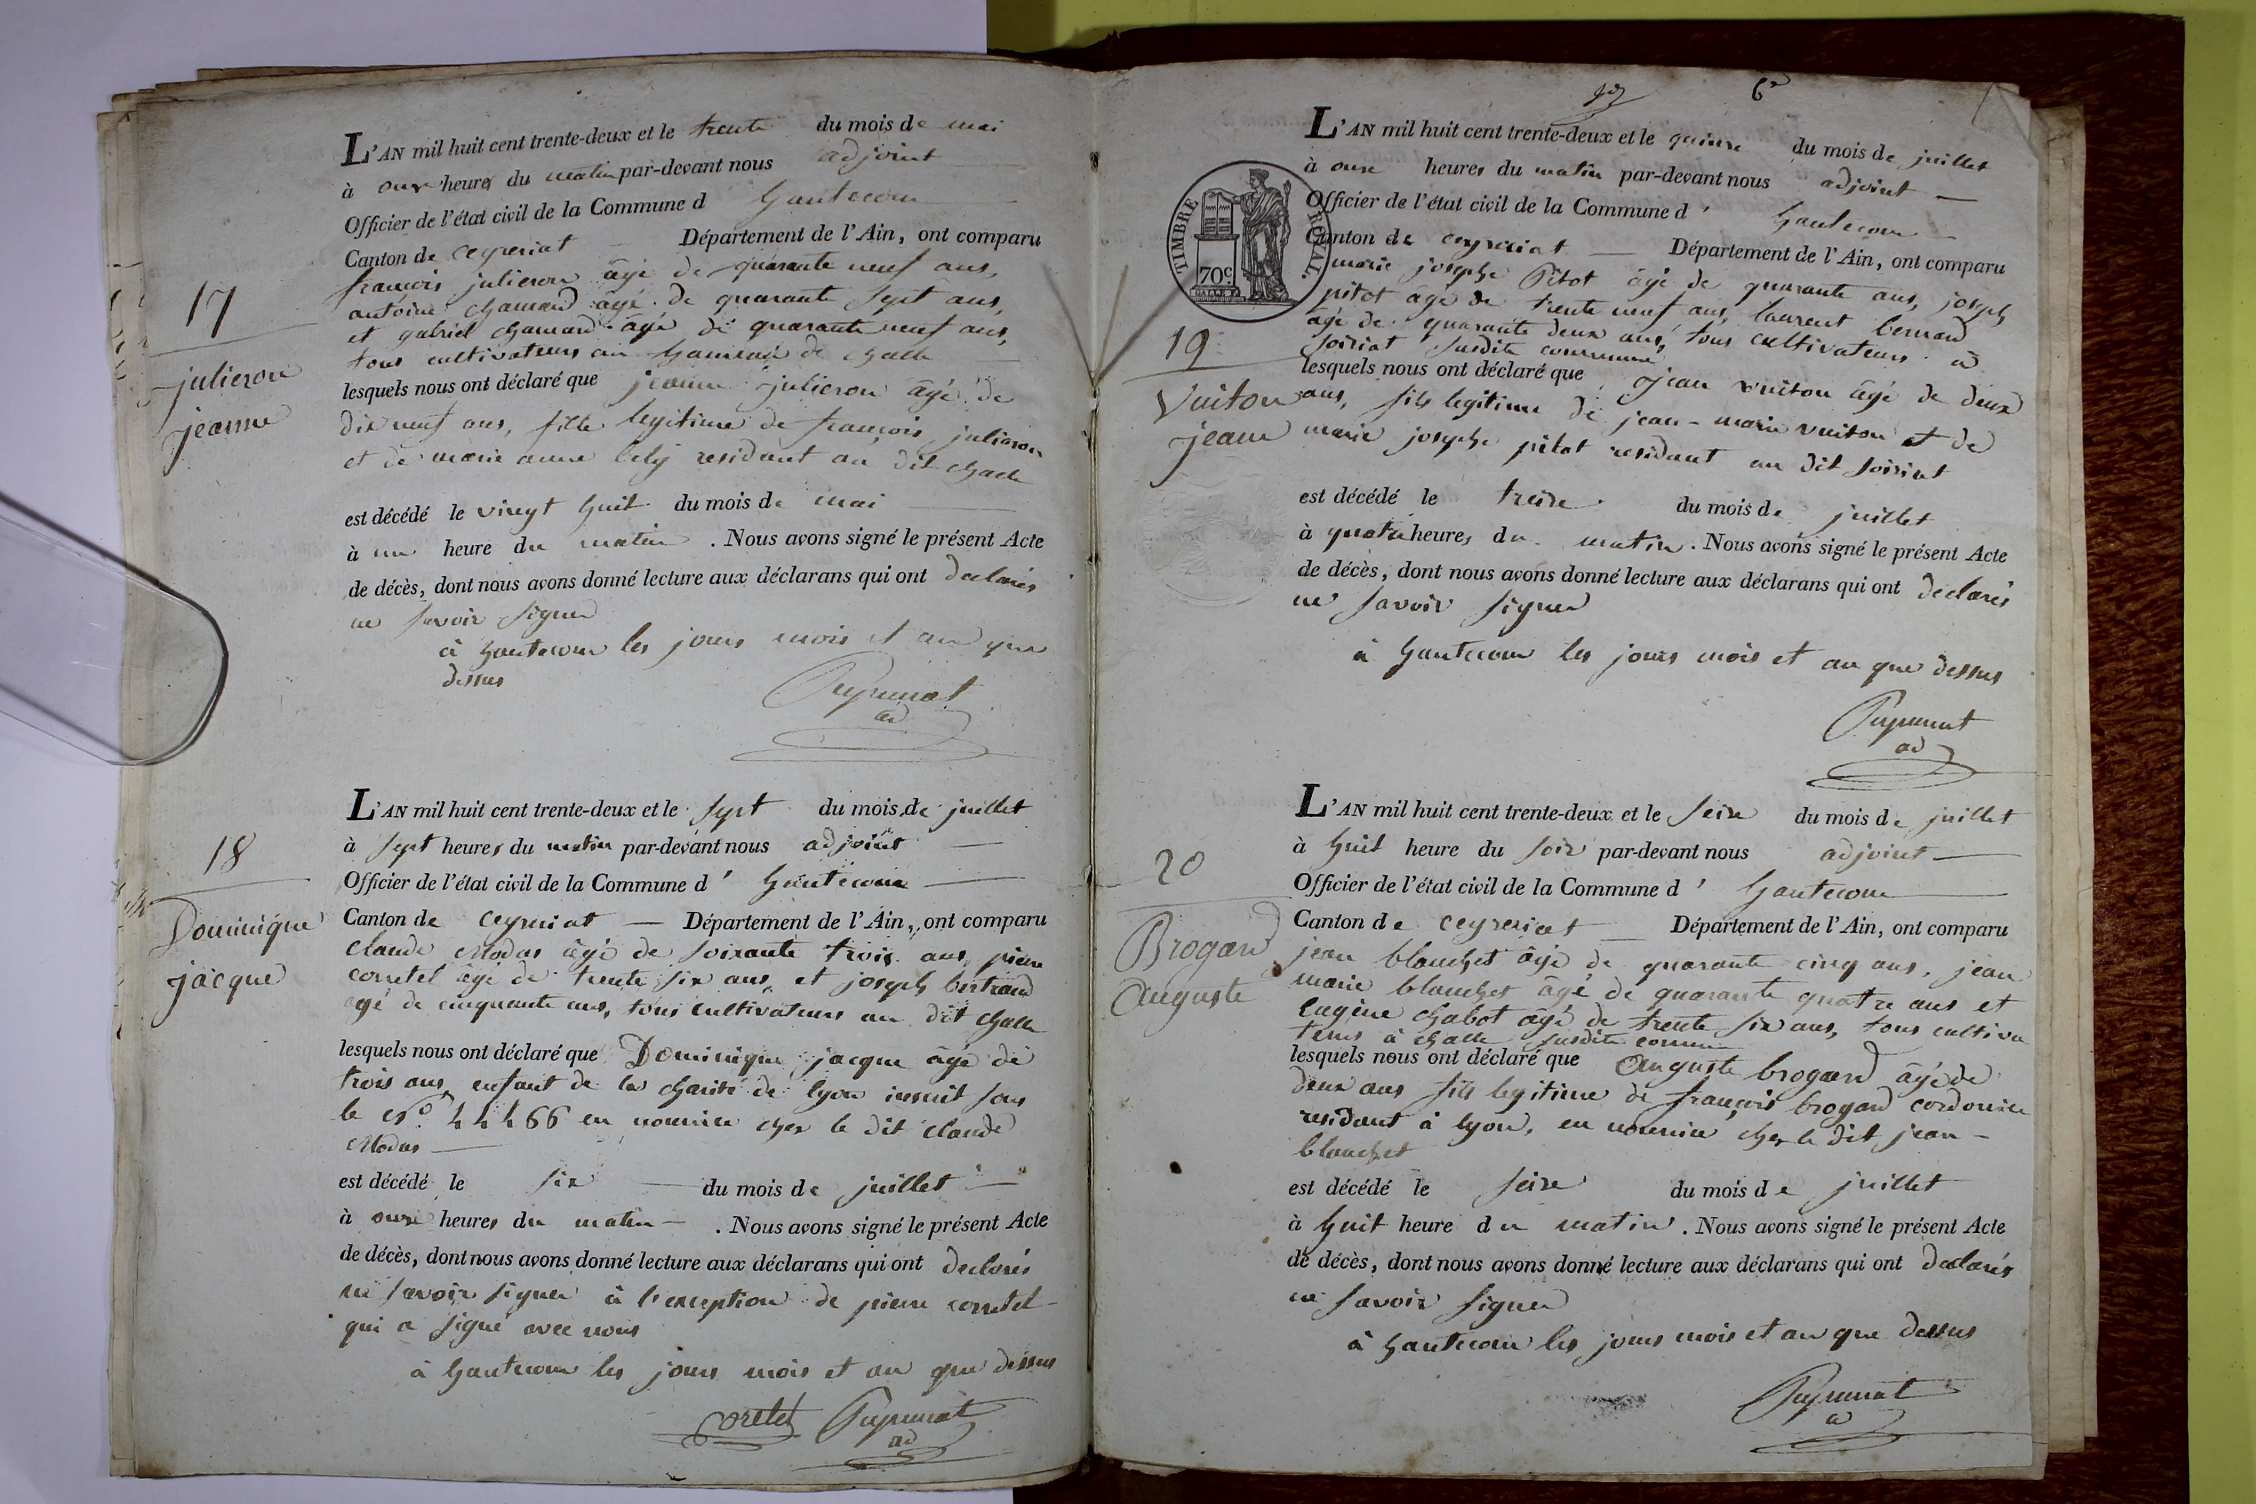 L'AN mil huit cent trente-deux et le trente du mois de mai
à onze heures du matin par-devant nous adjoint
Officier de l'état civil de la Commune d hautecour
Canton de ceyzeriat Département de l'Ain, ont comparu
françois julieron âgé de quarante neuf ans,
antoine chanard âgé de quarante sept ans,
et gabriel chanard âgé de quarante neuf ans,
tous cultivateurs au hameau de challe
17
julieron
jeanne
lesquels nous ont déclaré que jeanne julieron âgé de
dix neuf ans, fille legitime de françois julieron
et de marie anne residant au dit challe
est décédé le vingt huit du mois de mai
à un heure du matin . Nous avons signé le présent Acte
de décès, dont nous avons donné lecture aux déclarans qui ont declarés
ne savoir signer
à hautecour les jours mois et an que
dessus
ad
L'AN mil huit cent trente-deux et le sept du mois de juillet
à sept heures du matin par-devant nous adjoint
Officier de l'état civil de la Commune d' hautecour
Canton de ceyzeriat Département de l'Ain, ont comparu
18
Dominique
jacque
claude Modas âgé de soixante trois ans, pierre
corretel âgé de trente six ans, et joseph bertrand
agé de cinquante ans, tous cultivateurs au dit challe
lesquels nous ont déclaré que Dominique jacque âgé de
trois ans, enfant de la charité de lyon inscrit sous
le No. 44466 en nourrice chez le dit claude
Modas
est décédé le six du mois de juillet
à onze heures du matin . Nous avons signé le présent Acte
de décès, dont nous avons donné lecture aux déclarans qui ont declarés
ne savoir signer à l'exception de pierre corretel
qui a signé avec nous
à hautecour les jours mois et an que dessus
Coretel
ad
6e
TIMBRE ROYAL.
70c
L'AN mil huit cent trente-deux et le quinze du mois de juillet
à onze heures du matin par-devant nous adjoint
Officier de l'état civil de la Commune d' hautecour
Canton de ceyzeriat Département de l'Ain, ont comparu
marie josephe Pitot âgé de quarante ans, joseph
pitot âgé de trente neuf ans, laurent bernard
âgé de quarante deux ans, tous cultivateurs à
soiriat susdite commune
19
Vuiton
jean
lesquels nous ont déclaré que jean vuiton âgé de deux
ans, fils legitime de jean-marie vuiton et de
marie josephe pitot residant au dit soiriat
est décédé le treize du mois de juillet
à quatre heures du matin . Nous avons signé le présent Acte
de décès, dont nous avons donné lecture aux déclarans qui ont declarés
ne savoir signer
à hautecour les jours mois et an que dessus
ad
L'AN mil huit cent trente-deux et le seize du mois de juillet
à huit heure du soir par-devant nous adjoint
Officier de l'état civil de la Commune d' hautecour
Canton de ceyzeriat Département de l'Ain, ont comparu
20
Brogard
Auguste
jean blanchet âgé de quarante cinq ans, jean
marie blanchet âgé de quarante quatre ans et
Eugène chabot âgé de trente six ans, tous cultiva
teurs à challe susdite commune
lesquels nous ont déclaré que Auguste brogard âgé de
deux ans fils legitime de françois brogard cordonnier
residant à lyon, en nourrice chez le dit jean
blanchet
est décédé le seize du mois de juillet
à huit heure du matin . Nous avons signé le présent Acte
de décès, dont nous avons donné lecture aux déclarans qui ont declarés
ne savoir signer
à hautecour les jours mois et an que dessus